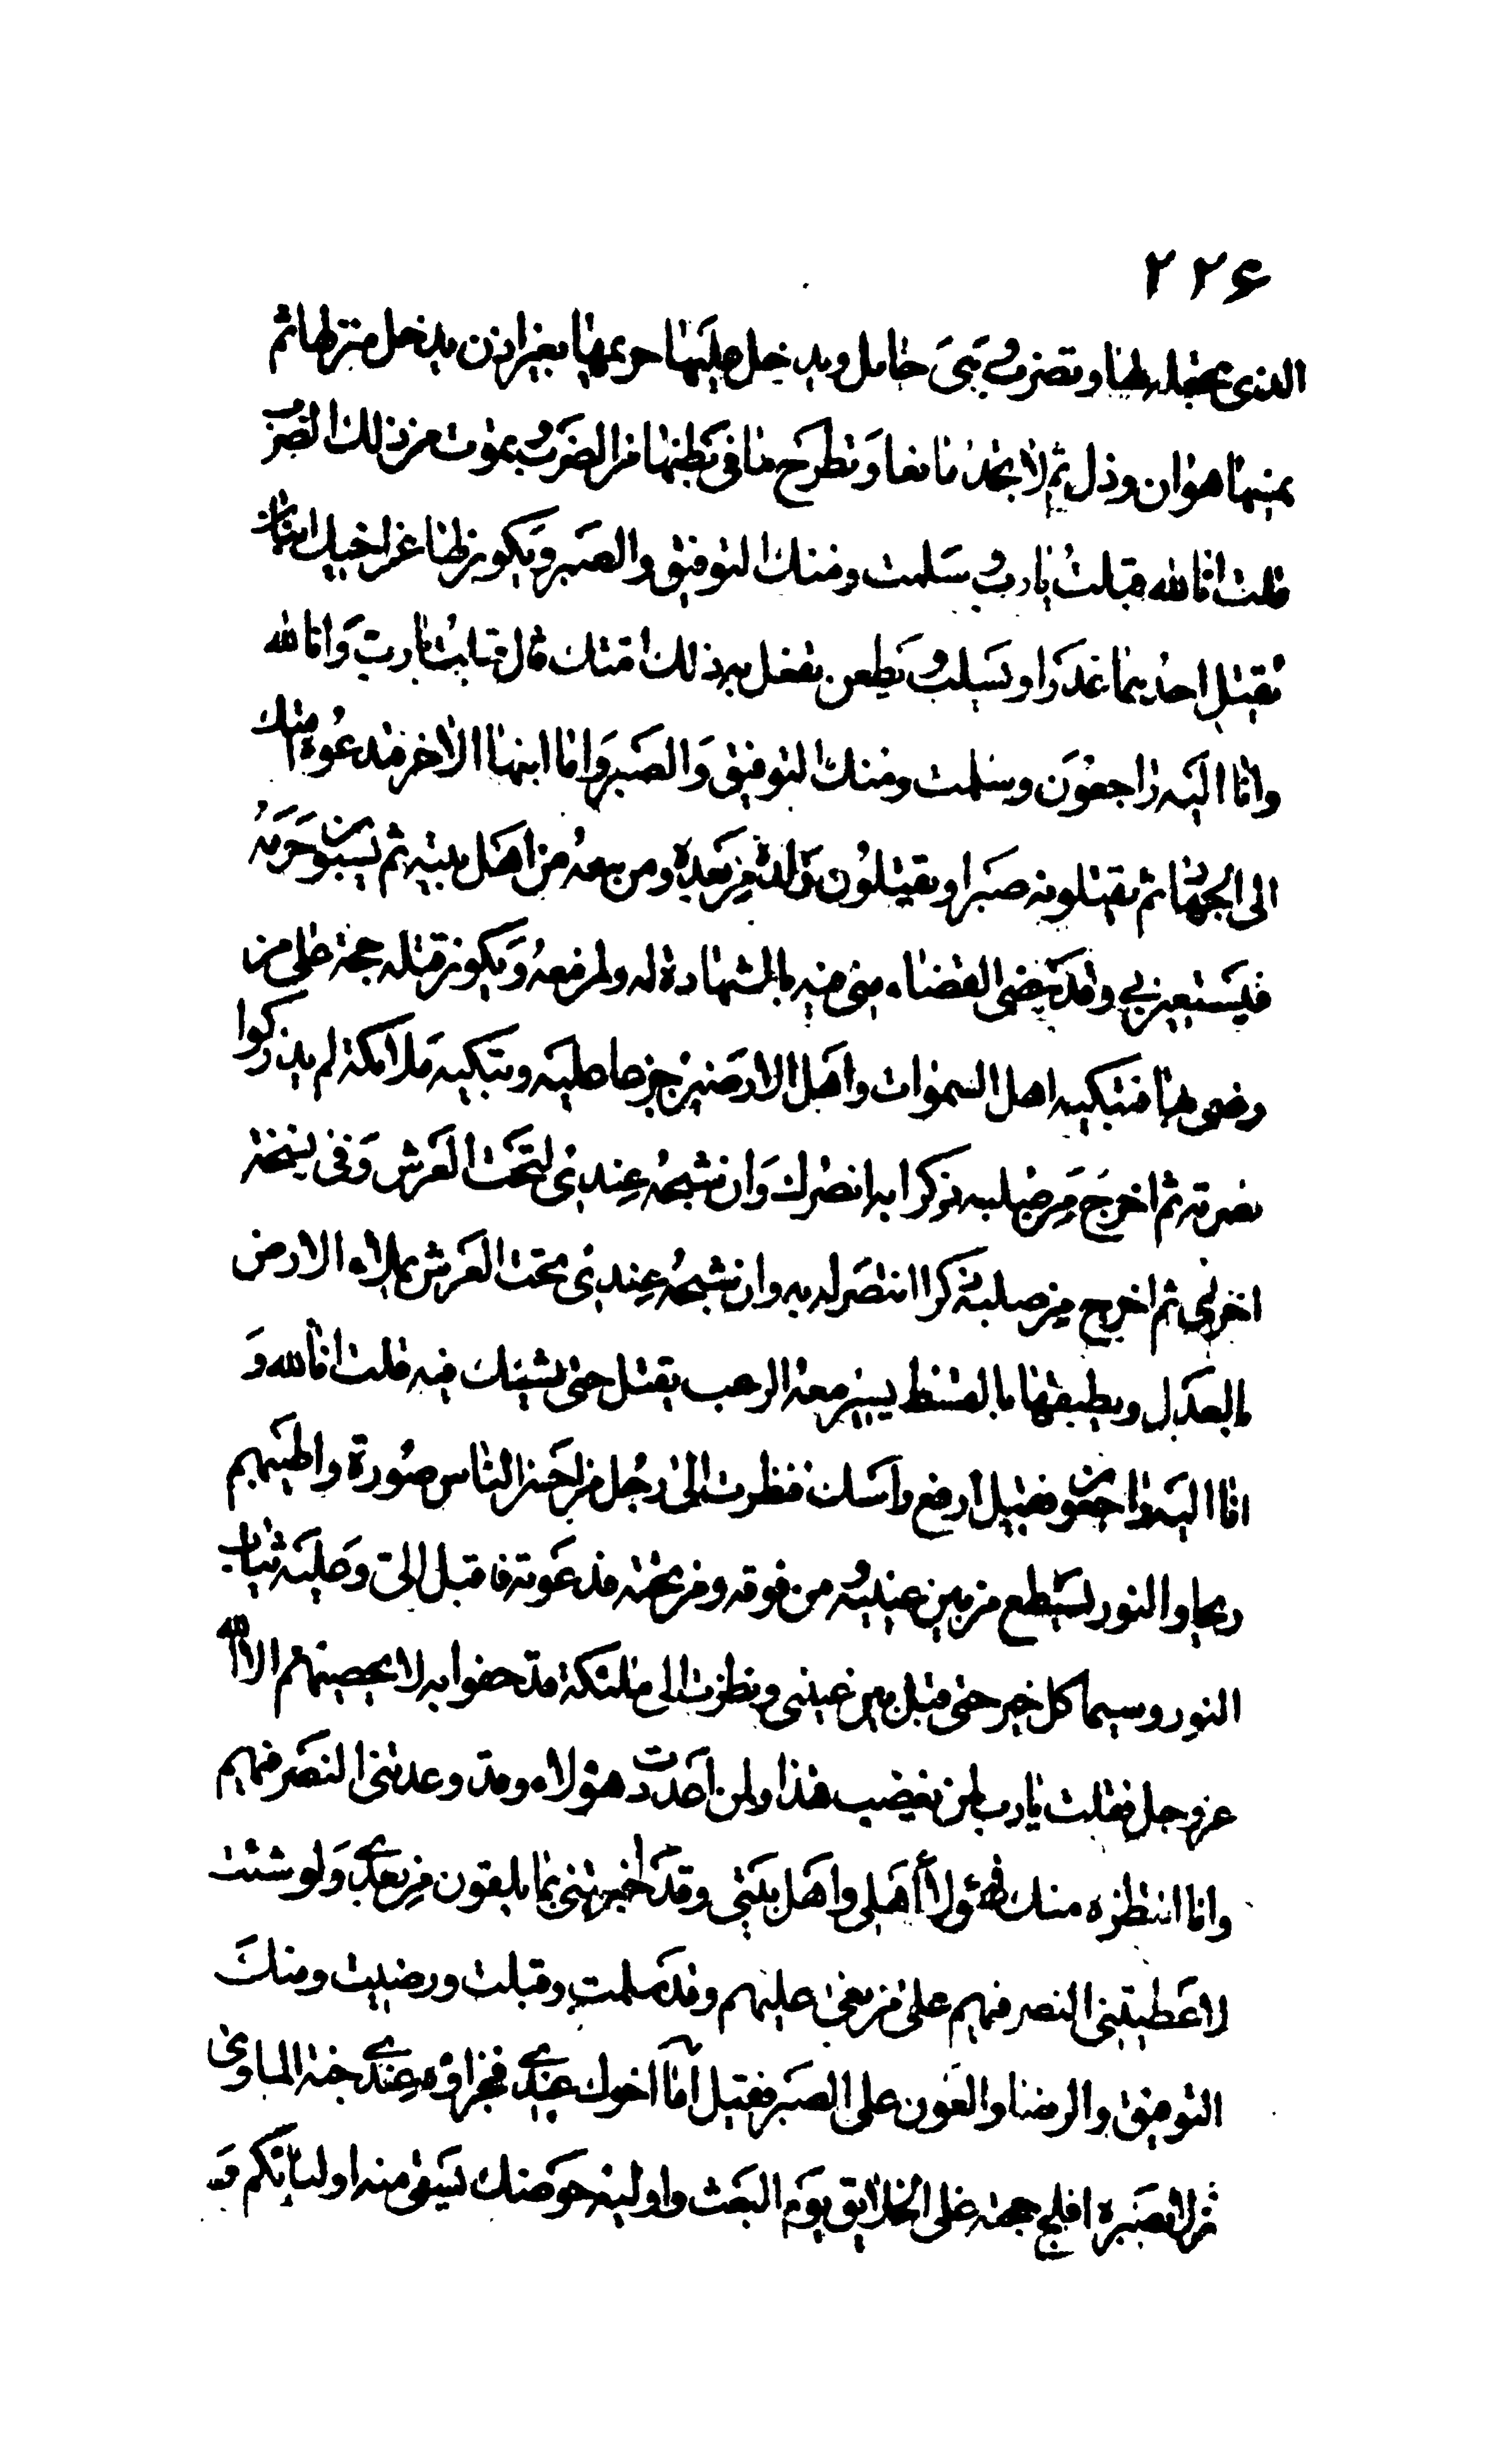 ٢٢۶
الذی تجعله لها و تضرب و هی حامل و یدخل علیها حریمها بغیر اذن یدخل منزلها ثم
یمسها هوان و ذل ثم لا تجد مانعا و تطرح ما فی بطنها من الضرب و تموت من ذلک الضرب
قلت انا لله قبلت یا رب و سلمت و منک التوفیق و الصبر و یکون لها من اخیک ابنان
یقتل احدهما غدرا و یسلب و یطعن یفعل به ذلک امتک قال قبلت یا رب و انا لله
و انا الیه راجعون و سلمت و منک التوفیق و الصبر و اما ابنها الاخر فتدعوه امتک
الی الجهاد ثم یقتلونه صبرا و یقتلون ولده من بعده و من معه من اهل بیته ثم یسبون حرمه
فیستعین بی و قد مضی القضاء منی فیه بالشهادة له و لمن معه و یکون قتله حجة علی من
قطریها فتبکیه اهل السموات و اهل الارضین جزعا علیه و تبکیه ملائکة لم یدرکوا
نصرته ثم اخرج من صلبه ذکرا به انصرک و ان شبحه عندی لتحت العرش و فی نسخة
اخری ثم اخرج من صلبه ذکرا انتصر له به و ان شبحه عندی تحت العرش یملاء الارض
بالعدل و یطبقها بالقسط یسیر معه الرعب یقتل حتی یشک فیه قلت انا لله و
انا الیه راجعون فقیل ارفع راسک فنظرت الی رجل من احسن الناس صورة و اطیبهم
ریحا و النور یسطع من بین عینیه من فوقه و من تحته فدعوته فاقبل الی و علیه ثیاب
النور و سیما کل خیر حتی قبل بین عینی و نظرت الی ملئکة قد حفوا به لا یحصیهم الا الله
عز و جل فقلت یا رب لمن یغضب هذا و لمن اعددت هؤلاء و قد وعدتنی النصر فیهم
و انا انتظره منک فهؤلاء اهلی و اهل بیتی و قد اخبرتنی بما یلقون من بعدی و لو شئت
لاعطیتنی النصر فیهم علی من بغی علیهم و قد سلمت و قبلت و رضیت و منک
التوفیق و الرضا و العون علی الصبر فقیل لی اما اخوک عندی فجزاؤه عندی جنة الماوی
نزلا بصبره افلج حجته علی الخلایق یوم البعث و اولیه حوضک یسقی منه اولیائکم و